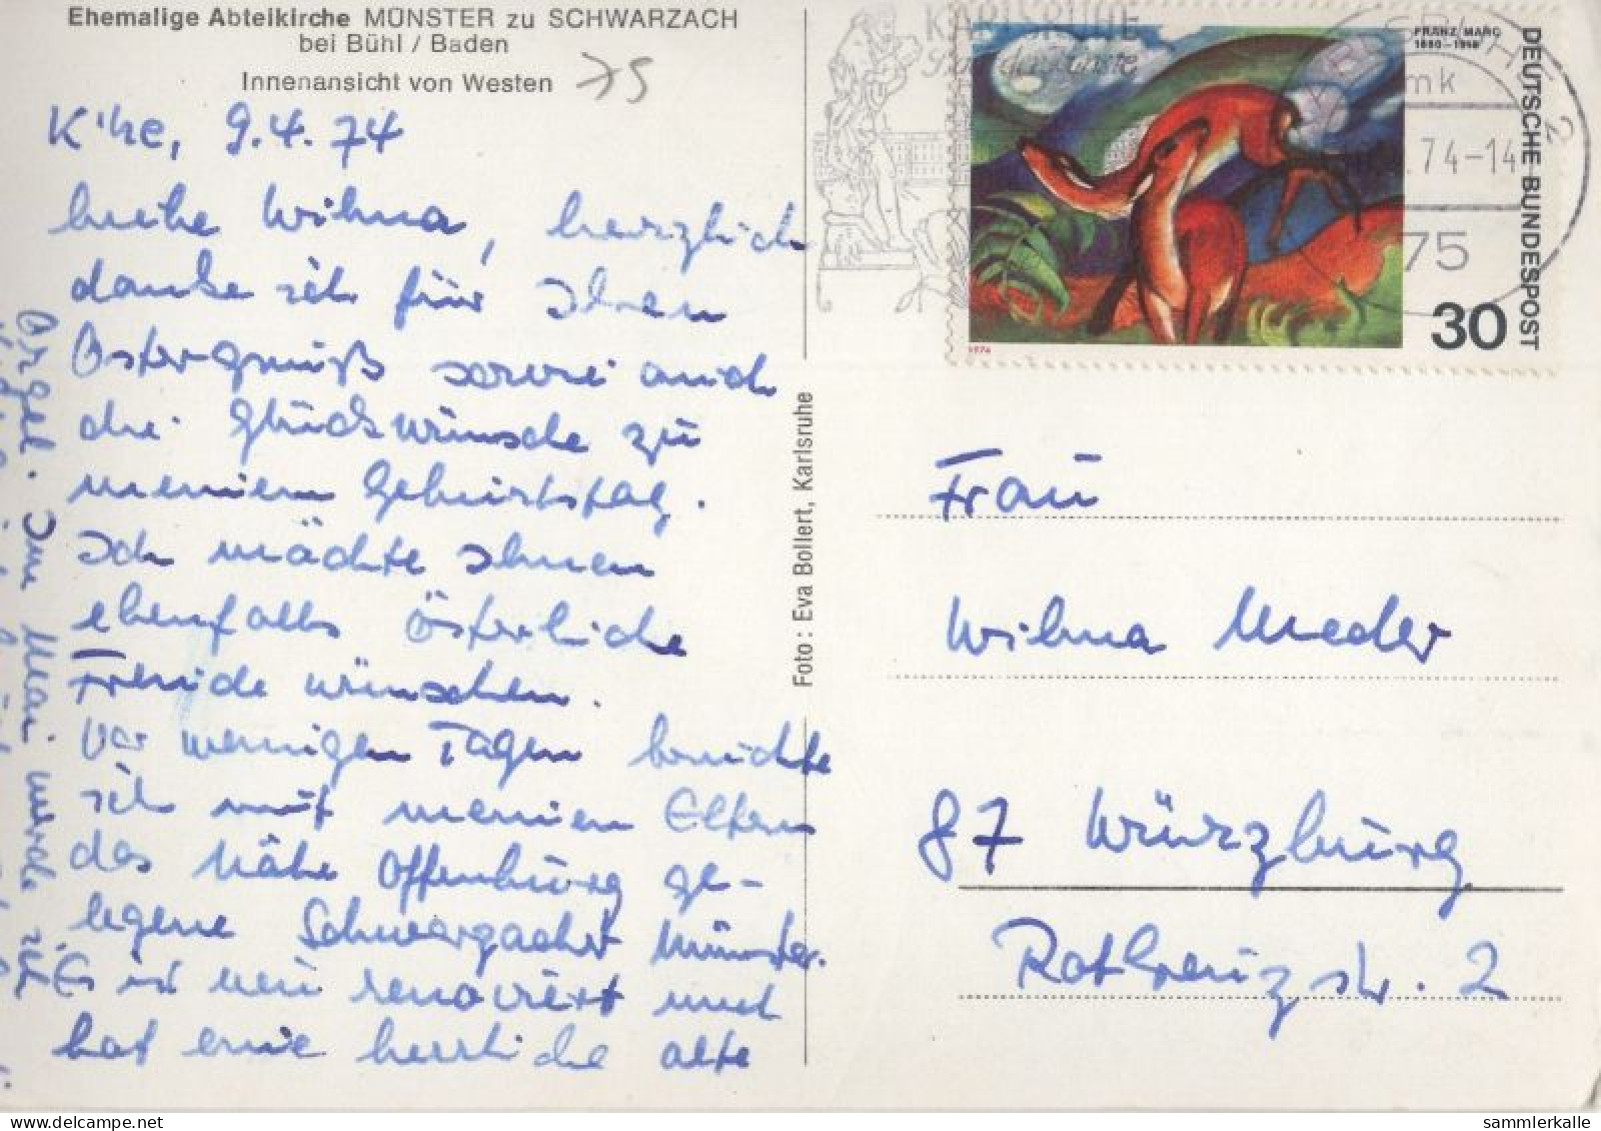 Ehemalige Abteikirche MÜNSTER zu SCHWARZACH
bei Bühl / Baden
Innenansicht von Westen
75
K'he, 9.4.74
Liebe Wilma, herzlich
danke ich für Ihren
Ostergruß sowie auch
die Glückwünsche zu
meinem Geburtstag.
Ich möchte Ihnen
ebenfalls österliche
Freude wünschen.
Vor wenigen Tagen besuchte
ich mit meinen Eltern
das Nähe Offenburg ge-
legene Schwarzacher Münster.
Es ist neu renoviert und
hat eine herrliche alte
Orgel. Im Mai werde ich
Foto: Eva Bollert, Karlsruhe
KARLSRUHE
FRANZ MARC
1880-1916
DEUTSCHE BUNDESPOST
30
1974
mk
.74-14
2
75
Frau
Wilma Meder
87 Würzburg
Rotkreuzstr. 2
sammlerkalle